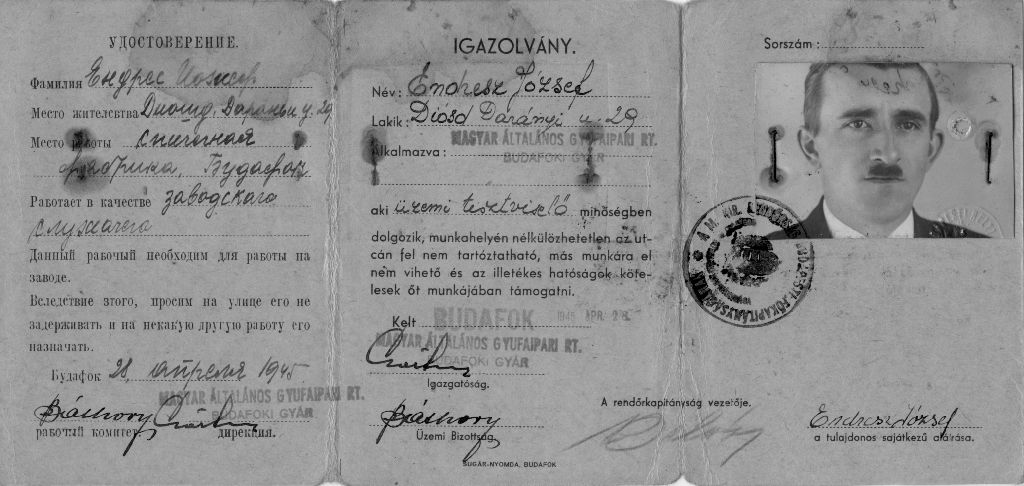 УДОСТОВЕРЕНИЕ.
Фамилия Ендрес Иозеф
Место жителсьтва Диошд, Дараньи у. 29
Место работы спичечная
фабрика, Будафок
Работает в качестве заводского
служачего
Данный рабочий необходим для работы на
заводе.
Вследствие зтого, просим на улице его не
задерживать и на некакую другую работу его
назначать.
Будафок 28, апреля 1945
MAGYAR ÁLTALÁNOS GYUFAIPARI RT.
BUDAFOKI GYÁR
Báthory
рабочий комитет. дирекция.
IGAZOLVÁNY.
Név: Endresz József
Lakik: Diósd Darányi u. 29
MAGYAR ÁLTALÁNOS GYUFAIPARI RT.
BUDAFOKI GYÁR
Alkalmazva:
aki üzemi tisztviselő minőségben
dolgozik, munkahelyén nélkülözhetetlen az ut-
cán fel nem tartóztatható, más munkára el
nem vihető és az illetékes hatóságok köte-
lesek őt munkájában támogatni.
Kelt BUDAFOK 1945 APR. 28.
MAGYAR ÁLTALÁNOS GYUFAIPARI RT.
BUDAFOKI GYÁR
Igazgatóság.
Báthory
Üzemi Bizottság.
SUGÁR-NYOMDA, BUDAFOK
Sorszám:
A M. KIR. BUDAPESTI FŐKAPITÁNYSÁG
A rendőrkapitányság vezetője.
Endresz József
a tulajdonos sajátkezű aláírása.